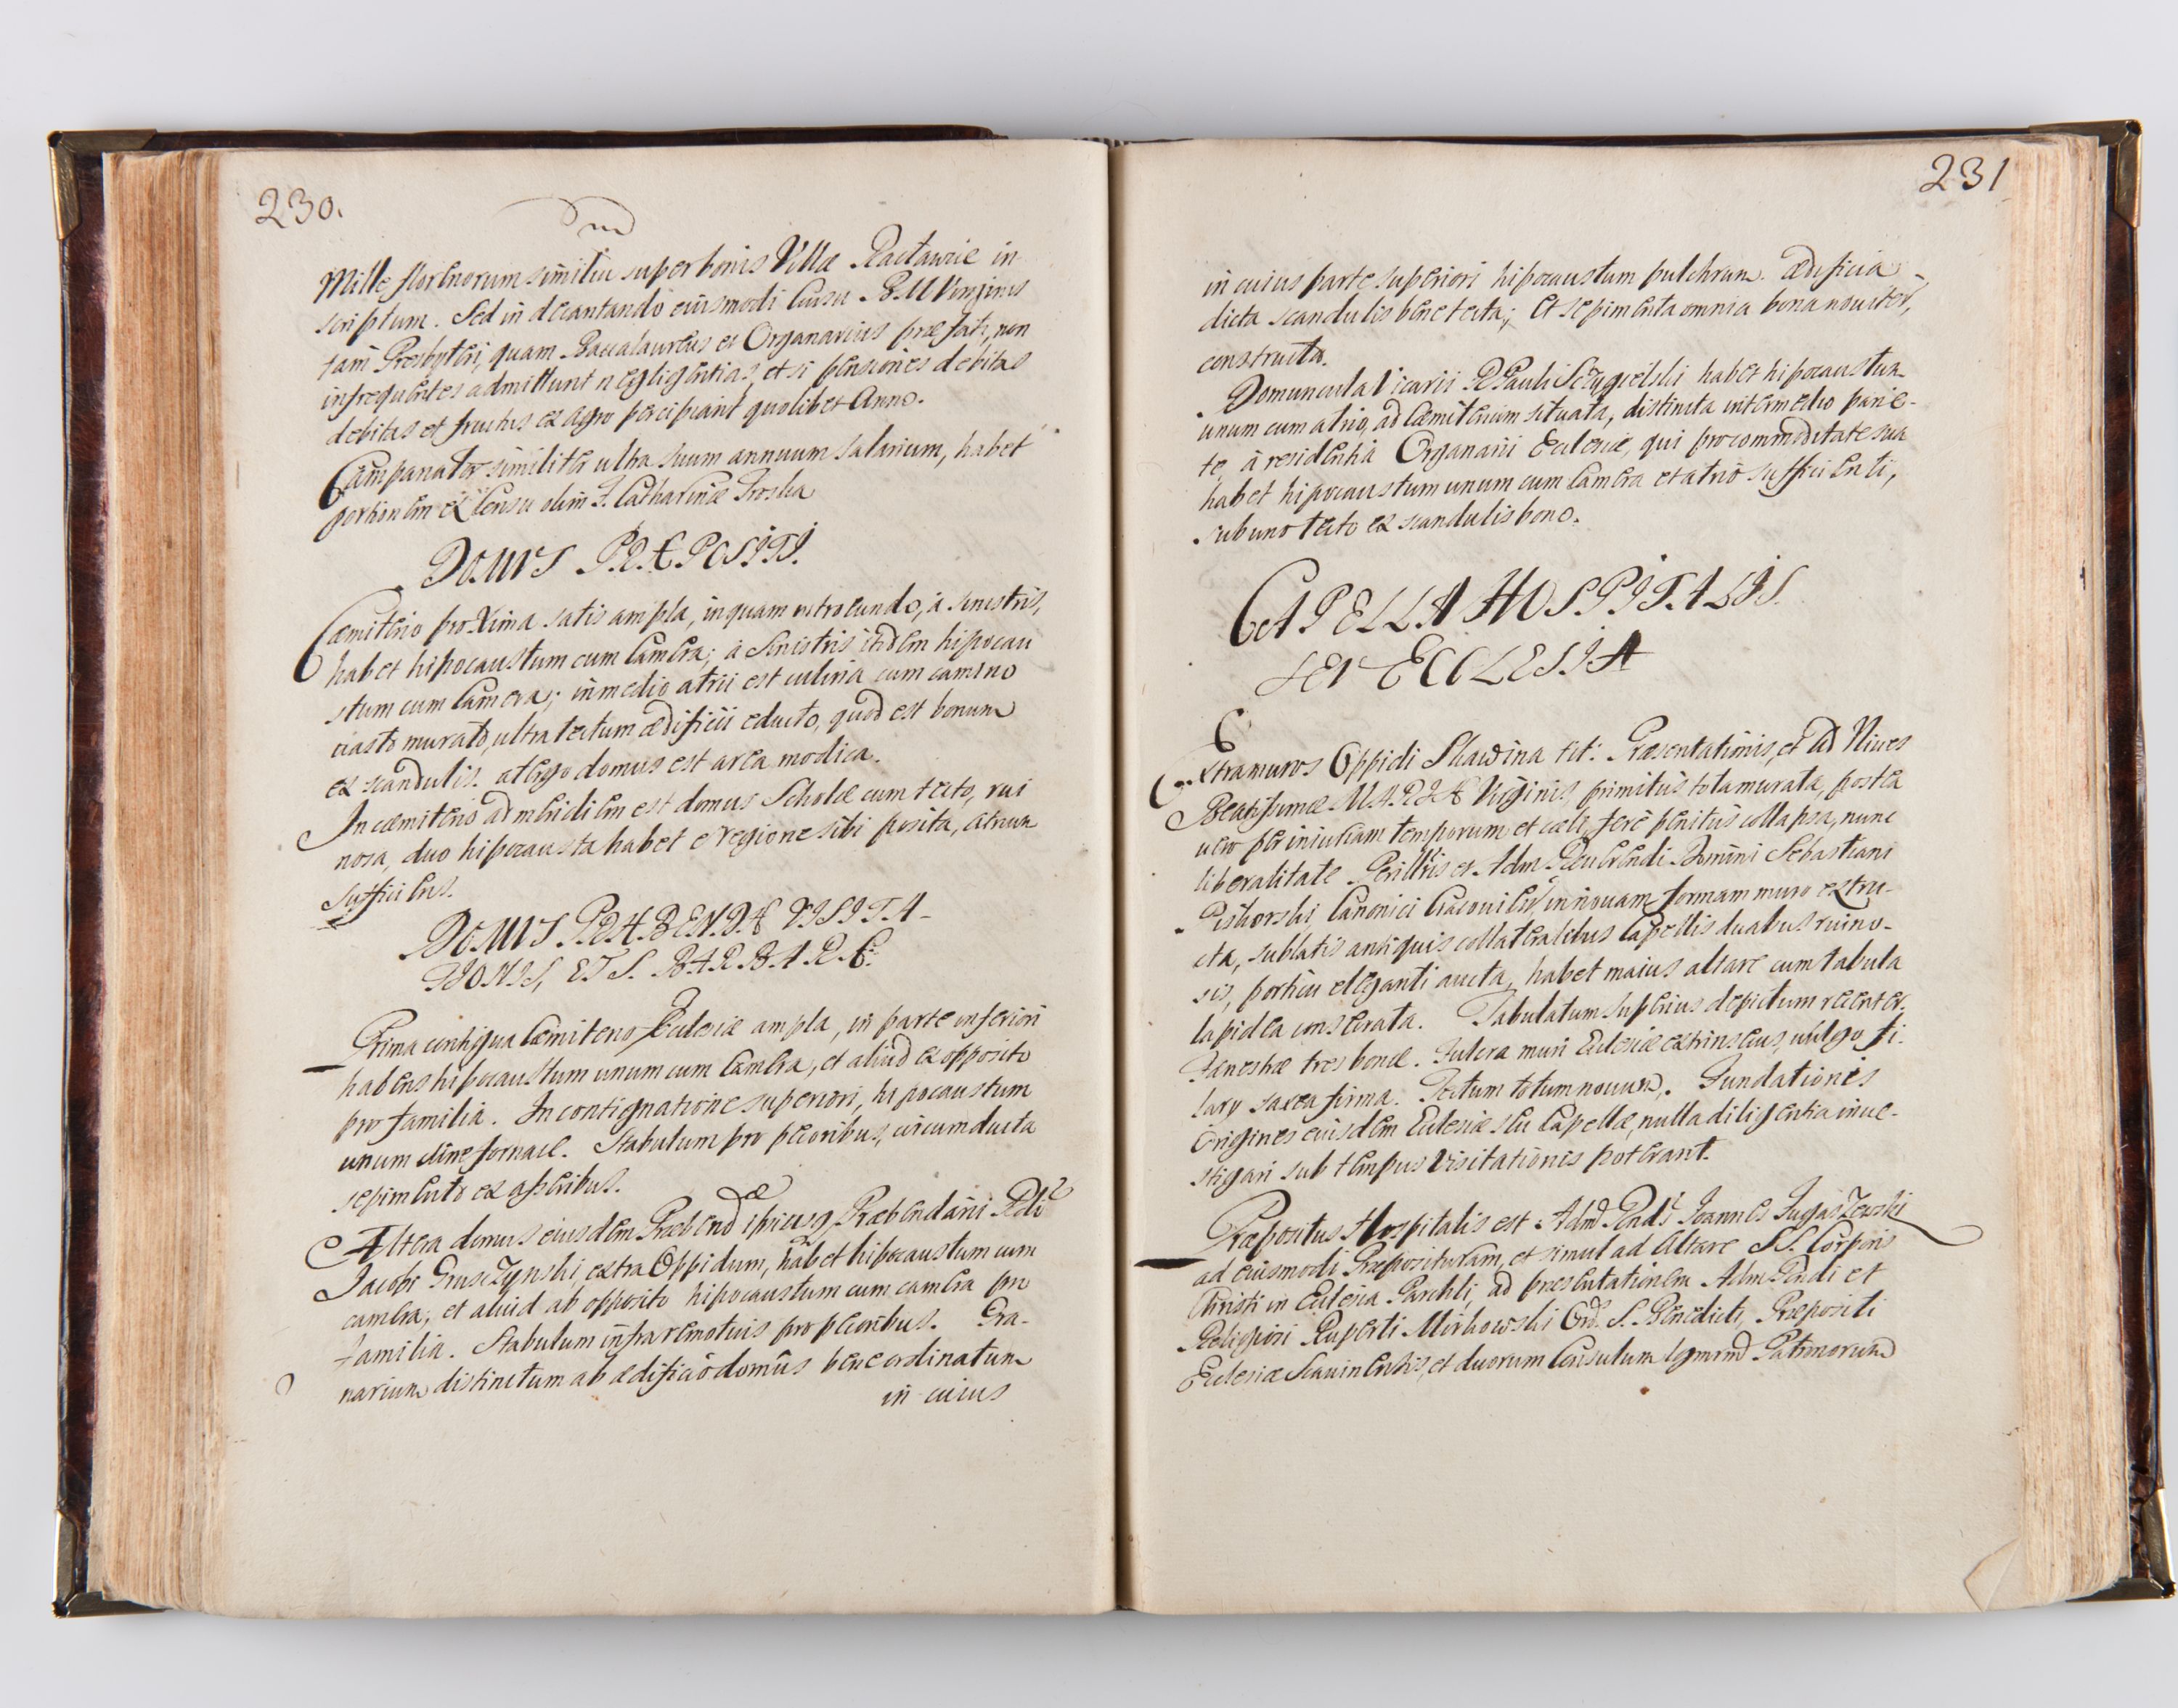 230.
Mille florenorum similiu super bonis Villæ Ractawice in
scriptum. Sed in decantando eiusmodi Cursu B. M Virginis
tam Presbyteri, quam Baccalaureus et Organarius præfati, non
infrequentes admittunt negligentias, etsi pensiones debitas
debitas et fructus ex agro percipiant quolibet Anno.
Campanator similiter ultra suum annuum salarium, habet
portionem ex Censu olim F. Catharinæ
DOMUS PRÆPOSITI.
Cæmiterio proxima satis ampla, in quam introeundo, a sinistris,
habet hipocaustum cum Camera; a Sinistris itidem hipocau
stum cum Camera; in medio atrii est culina cum camino
vasto murato, ultra tectum ædificii educto, quod est bonum
ex scandulis. a tergo domus est area modica.
In cæmiterio ad meridiem est domus Scholæ cum tecto, rui
nosa, duo hipocausta habet e regione sibi posita, atrium
sufficiens.
DOMUS PRÆBENDÆ VISITA-
TIONIS, ET S. BARBARÆ.
Prima contigua Cæmiterio Ecclesiæ ampla, in parte inferiori
habens hipocaustum unum cum Camera, et aliud ex opposito
pro familia. In contignatione superiori, hipocaustum
unum sine fornace. Stabulum pro pecoribus, circumducta
sepimento ex asseribus.
Altera domus eiusdem Præbendæ ipsiusq Præbendarii Rdi
Jacobi Grusczynski, extra Oppidum, habet hipocaustum cum
camera; et aliud ab opposito hipocaustum cum camera pro
familia. Stabulum infra remotius pro pecoribus. Gra-
narium distinctum ab ædificio domus bene ordinatum
in cuius
231
in cuius parte superiori hipocaustum pulchrum. Ædificia
dicta scandulis bene tecta; et sepimenta omnia bona noviter,
constructa.
Domuncula Vicarii R Pauli Sczygielski habet hipocaustum
unum cum atrio, ad Cæmiterium situata, distincta intermedio parie-
te, à residentia Organarii Ecclesiæ, qui pro commoditate sua
habet hipocaustum unum cum Camera et atrio sufficienti,
sub uno tecto ex scandulis bono.
CAPELLA HOSPITALIS.
SEU ECCLESIA
Extra muros Oppidi Skawina tit: Præsentationis, et ad Nives
Beatissimæ MARIÆ Virginis, primitus tota murata, postea
vero per iniuriam temporum et cæli, fere penitus collapsa, nunc
liberalitate Perillris et Adm Reverendi Domini Sebastiani
Piskorski Canonici Cracovien, in novam formam muro extru-
cta, sublatis antiquis collateralibus Capellis duabus ruino-
sis, porticu eleganti aucta, habet maius altare cum tabula
lapidea consecrata. Tabulatum superius depictum recenter.
Fenestræ tres bonæ. Fulcra muri Ecclesiæ extrinsecus, vulgo fi-
lary saxea firma. Tectum totum novum. Fundationis
Origines eiusdem Ecclesiæ seu Capellæ, nulla diligentia inve-
stigari sub tempus Visitationis poterant.
Præpositus Hospitalis est Adm Rnds Joannes Jugaszewski
ad eiusmodi Præposituram, et simul ad Altare SS. Corporis
Christi in Ecclesia Parchli, ad præsentationem Adm Rndi et
Religiosi Ruperti Mirkowski Ord. S. Benedicti, Præpositi
Ecclesiæ Scavinensis, et duorum Consulum Patronorum